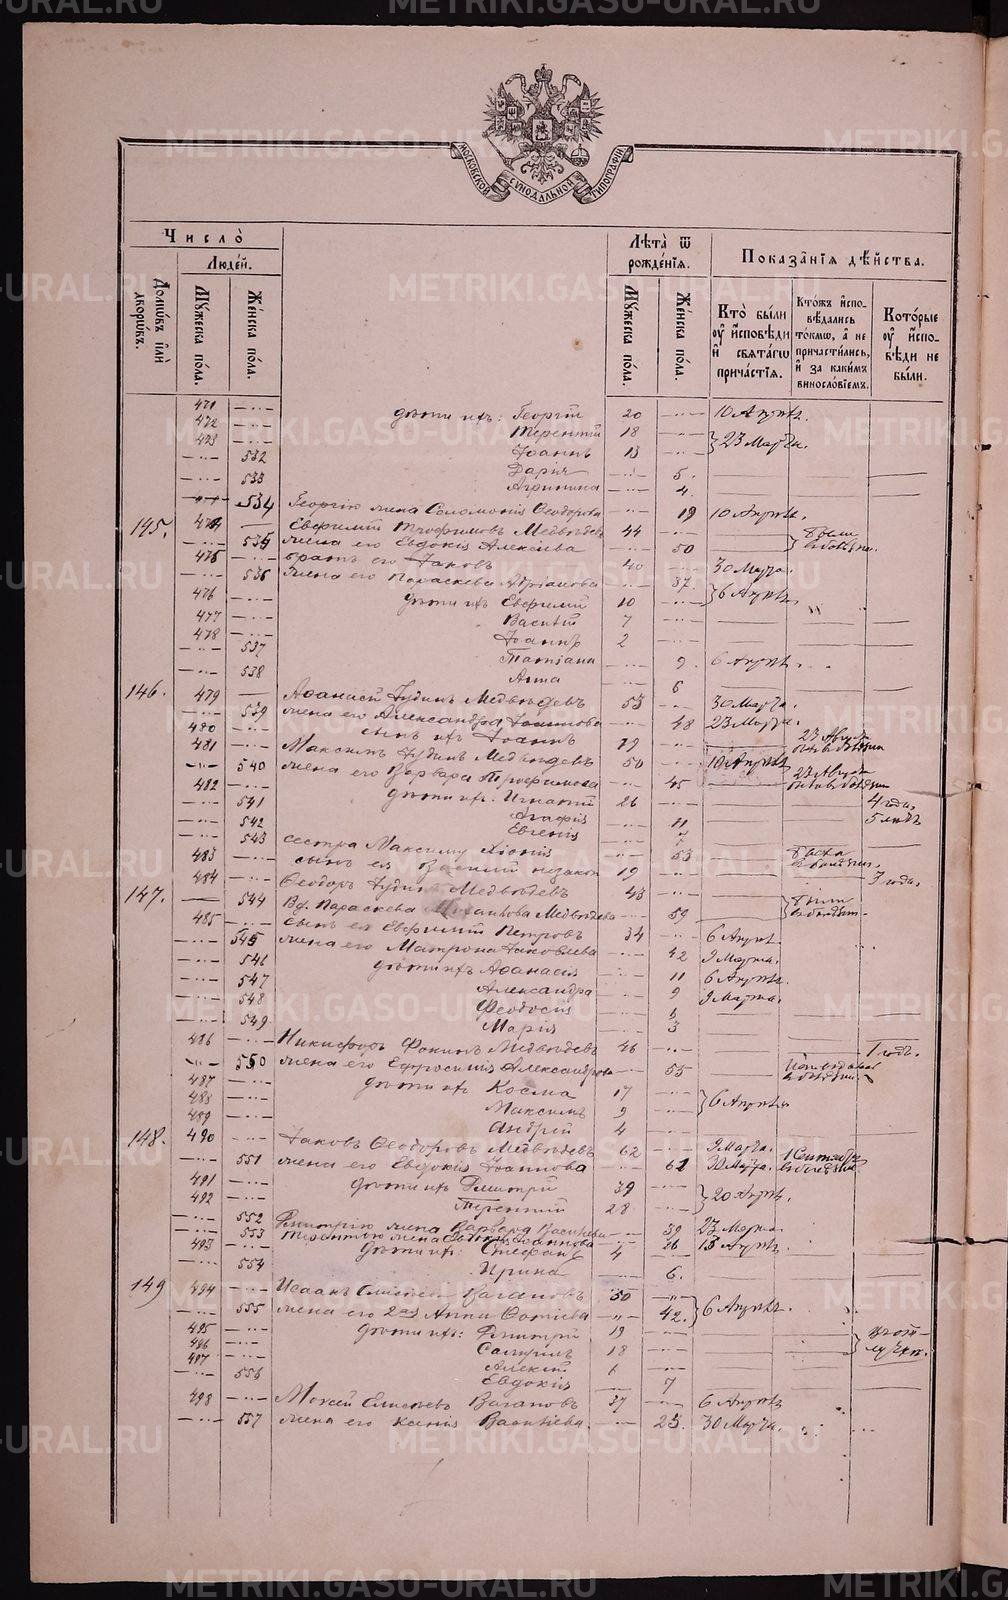 METRIKI.GASO-URAL.RU
МОСКОВСКОЙ СѴНОДАЛЬНОЙ ТИПОГРАФІИ
Число̀
Людей.
Домѡвъ или дворѡвъ.
Мꙋжеска пола.
Женска пола.
Лѣта ѿ рожденїѧ.
Мꙋжеска пола.
Женска пола.
Показанїѧ дѣйства.
Кто были оу исповѣди и свѧтагѡ причастїѧ.
Ктожъ исповѣдались токмѡ, а не причастились, и за какимъ винословїемъ.
Которые оу исповѣди не были.
471 дѣти ихъ: Георгій 20 10 Апрѣл.
472 Терентій 18 23 Марта.
473 Іоаннъ 13
532 Дарія 5.
533 Агрипина 4.
534 Георгію жена Соломонія Ѳеодорова 19 10 Апрѣл.
145. 474 Евфимій Трофимовъ Медвѣдевъ 44
535 жена его Евдокія Алексѣева 50
475 братъ его Іаковъ 40 30 Марта.
536 жена его Параскева Адріанова 37. 6 Апрѣл.
476 дѣти ихъ Евфимій 10
477 Василій 7
478 Іоаннъ 2
537 Татіана 9. 6 Апрѣл.
538 Анна 6
146. 479 Аѳанасій Іудинъ Медвѣдевъ 53 30 Марта.
539 жена его Александра Іоаннова 48 23 Марта.
480 сынъ ихъ Іоаннъ 19 23 Августа
481 Максимъ Іудинъ Медвѣдевъ 50 10 Апрѣл.
540 жена его Варвара Трофимова 45 23 Августа
482 дѣти ихъ: Игнатій 26 4 года.
541 Агафія 11 5 лѣтъ
542 Евгенія 7
543 сестра Максиму Хіонія 53
483 сынъ ея Василій незакон 19 3 года.
147. 484 Ѳеодоръ Іудинъ Медвѣдевъ 43
544 Вд. Параскева Медвѣдева 59
485 сынъ ея Евфимій Петровъ 34 6 Апрѣл.
545 жена его Матрона Іаковлева 42 9 Марта.
546 дѣти ихъ Аѳанасія 11 6 Апрѣл.
547 Александра 9 9 Марта.
548 Ѳеодосія 6
549 Марія 3
486 Никифоръ Фокинъ Медвѣдевъ 46 1 годъ.
550 жена его Ефросинія Александрова 55
487 дѣти ихъ Косма 17 6 Апрѣл.
488 Максимъ 9
489 Андрей 4
148. 490 Іаковъ Ѳеодоровъ Медвѣдевъ 62 9 Марта. 1 Сентября
551 жена его Евдокія Іоаннова 61 30 Марта.
491 дѣти ихъ Дмитрій 39 20 Апрѣл.
492 Терентій 28
552 Дмитрію жена Варвара Васильева 39 23 Марта.
553 Терентію жена Евдокія Іоаннова 26 13 Апрѣл.
493 дѣти ихъ: Стефанъ 4
554 Ирина 6.
149 494 Исаакъ Ваганов 50
555 жена его 2я Анна Фотіева 42. 6 Апрѣл.
495 дѣти ихъ: Дмитрій 19
496 Самуилъ 18
497 Алексій 1
556 Евдокія 7
498 Моисей Елисѣевъ Вагановъ 37 6 Апрѣл.
557 жена его Ксенія Васильева 25. 30 Марта.